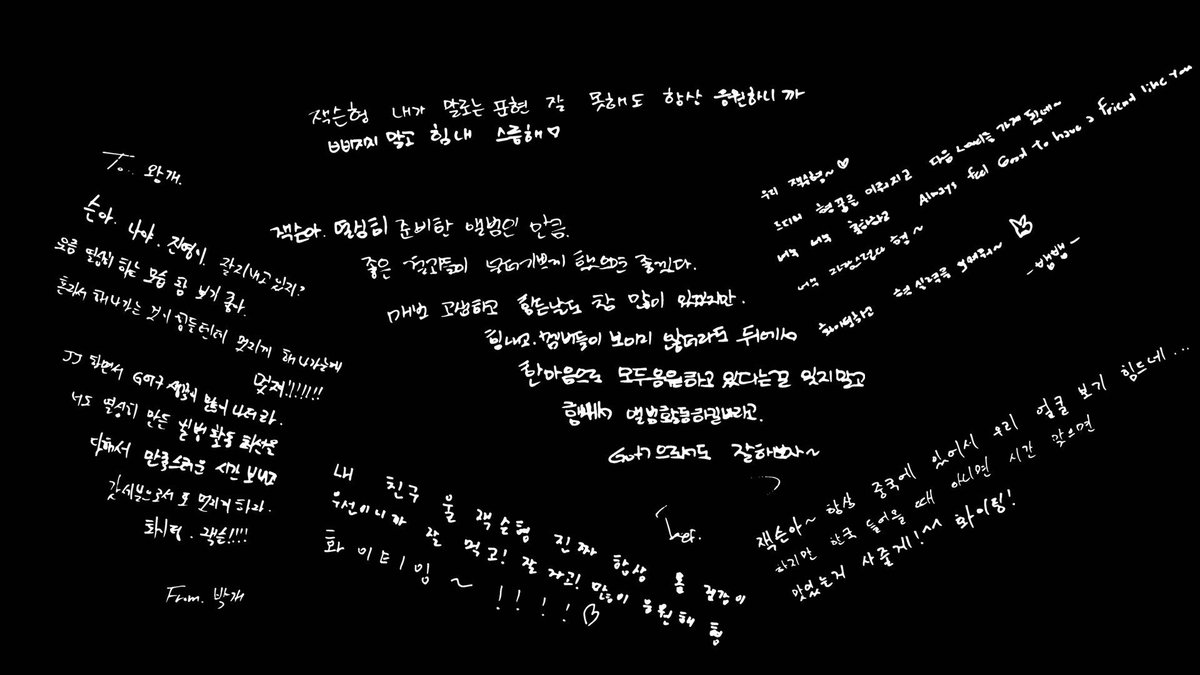 잭슨형 내가 말로는 표현 잘 못해도 항상 응원하니까
삐지지 말고 힘내 스릉해♡
To. 왕개.
슨아. 나야. 진영이. 잘지내고 있지?
요즘 열심히 하는 모습 참 보기 좋다.
혼자서 해나가는 것이 힘들텐데 멋지게 해나가는게
멋져!!!!!!
JJ 하면서 GOT7 생각이 많이 나더라.
너도 열심히 만든 앨범 활동 최선을
다해서 만족스러운 시간 보내고
갓세븐으로서 또 멋지게 하자.
화이팅. 잭슨!!!!
From. 박개
잭슨아. 열심히 준비한 앨범인 만큼.
좋은 결과들이 뒷따라오게 됐으면 좋겠다.
매번 고생하고 힘든날도 참 많이 있겠지만.
힘내고. 멤버들이 보이지 않더라도 뒤에서
한마음으로 모두응원하고 있다는걸 잊지말고
행복하게 앨범활동하길바라고.
GOT7으로서도 잘해보자~
우리 잭슨형~♡
드디어 형꿈을 이뤄지고 다음 레벨을 가게 됐네~
너무 너무 축하하고 Always feel Good to have a friend like you
너무 자랑스럽다 형~
화이팅하고 형실력을 보여줘~
-뱀뱀-
내 친구 울 잭슨형 진짜 항상 몸 건강이
우선이니까 잘 먹고! 잘 자고! 많이 응원해 형
화이티잉~!!!!♡
잭슨아~ 항상 중국에 있어서 우리 얼굴 보기 힘드네...
하지만 한국 들어올 때 아니면 시간 맞으면
맛있는거 사줄게!^^ 화이팅!